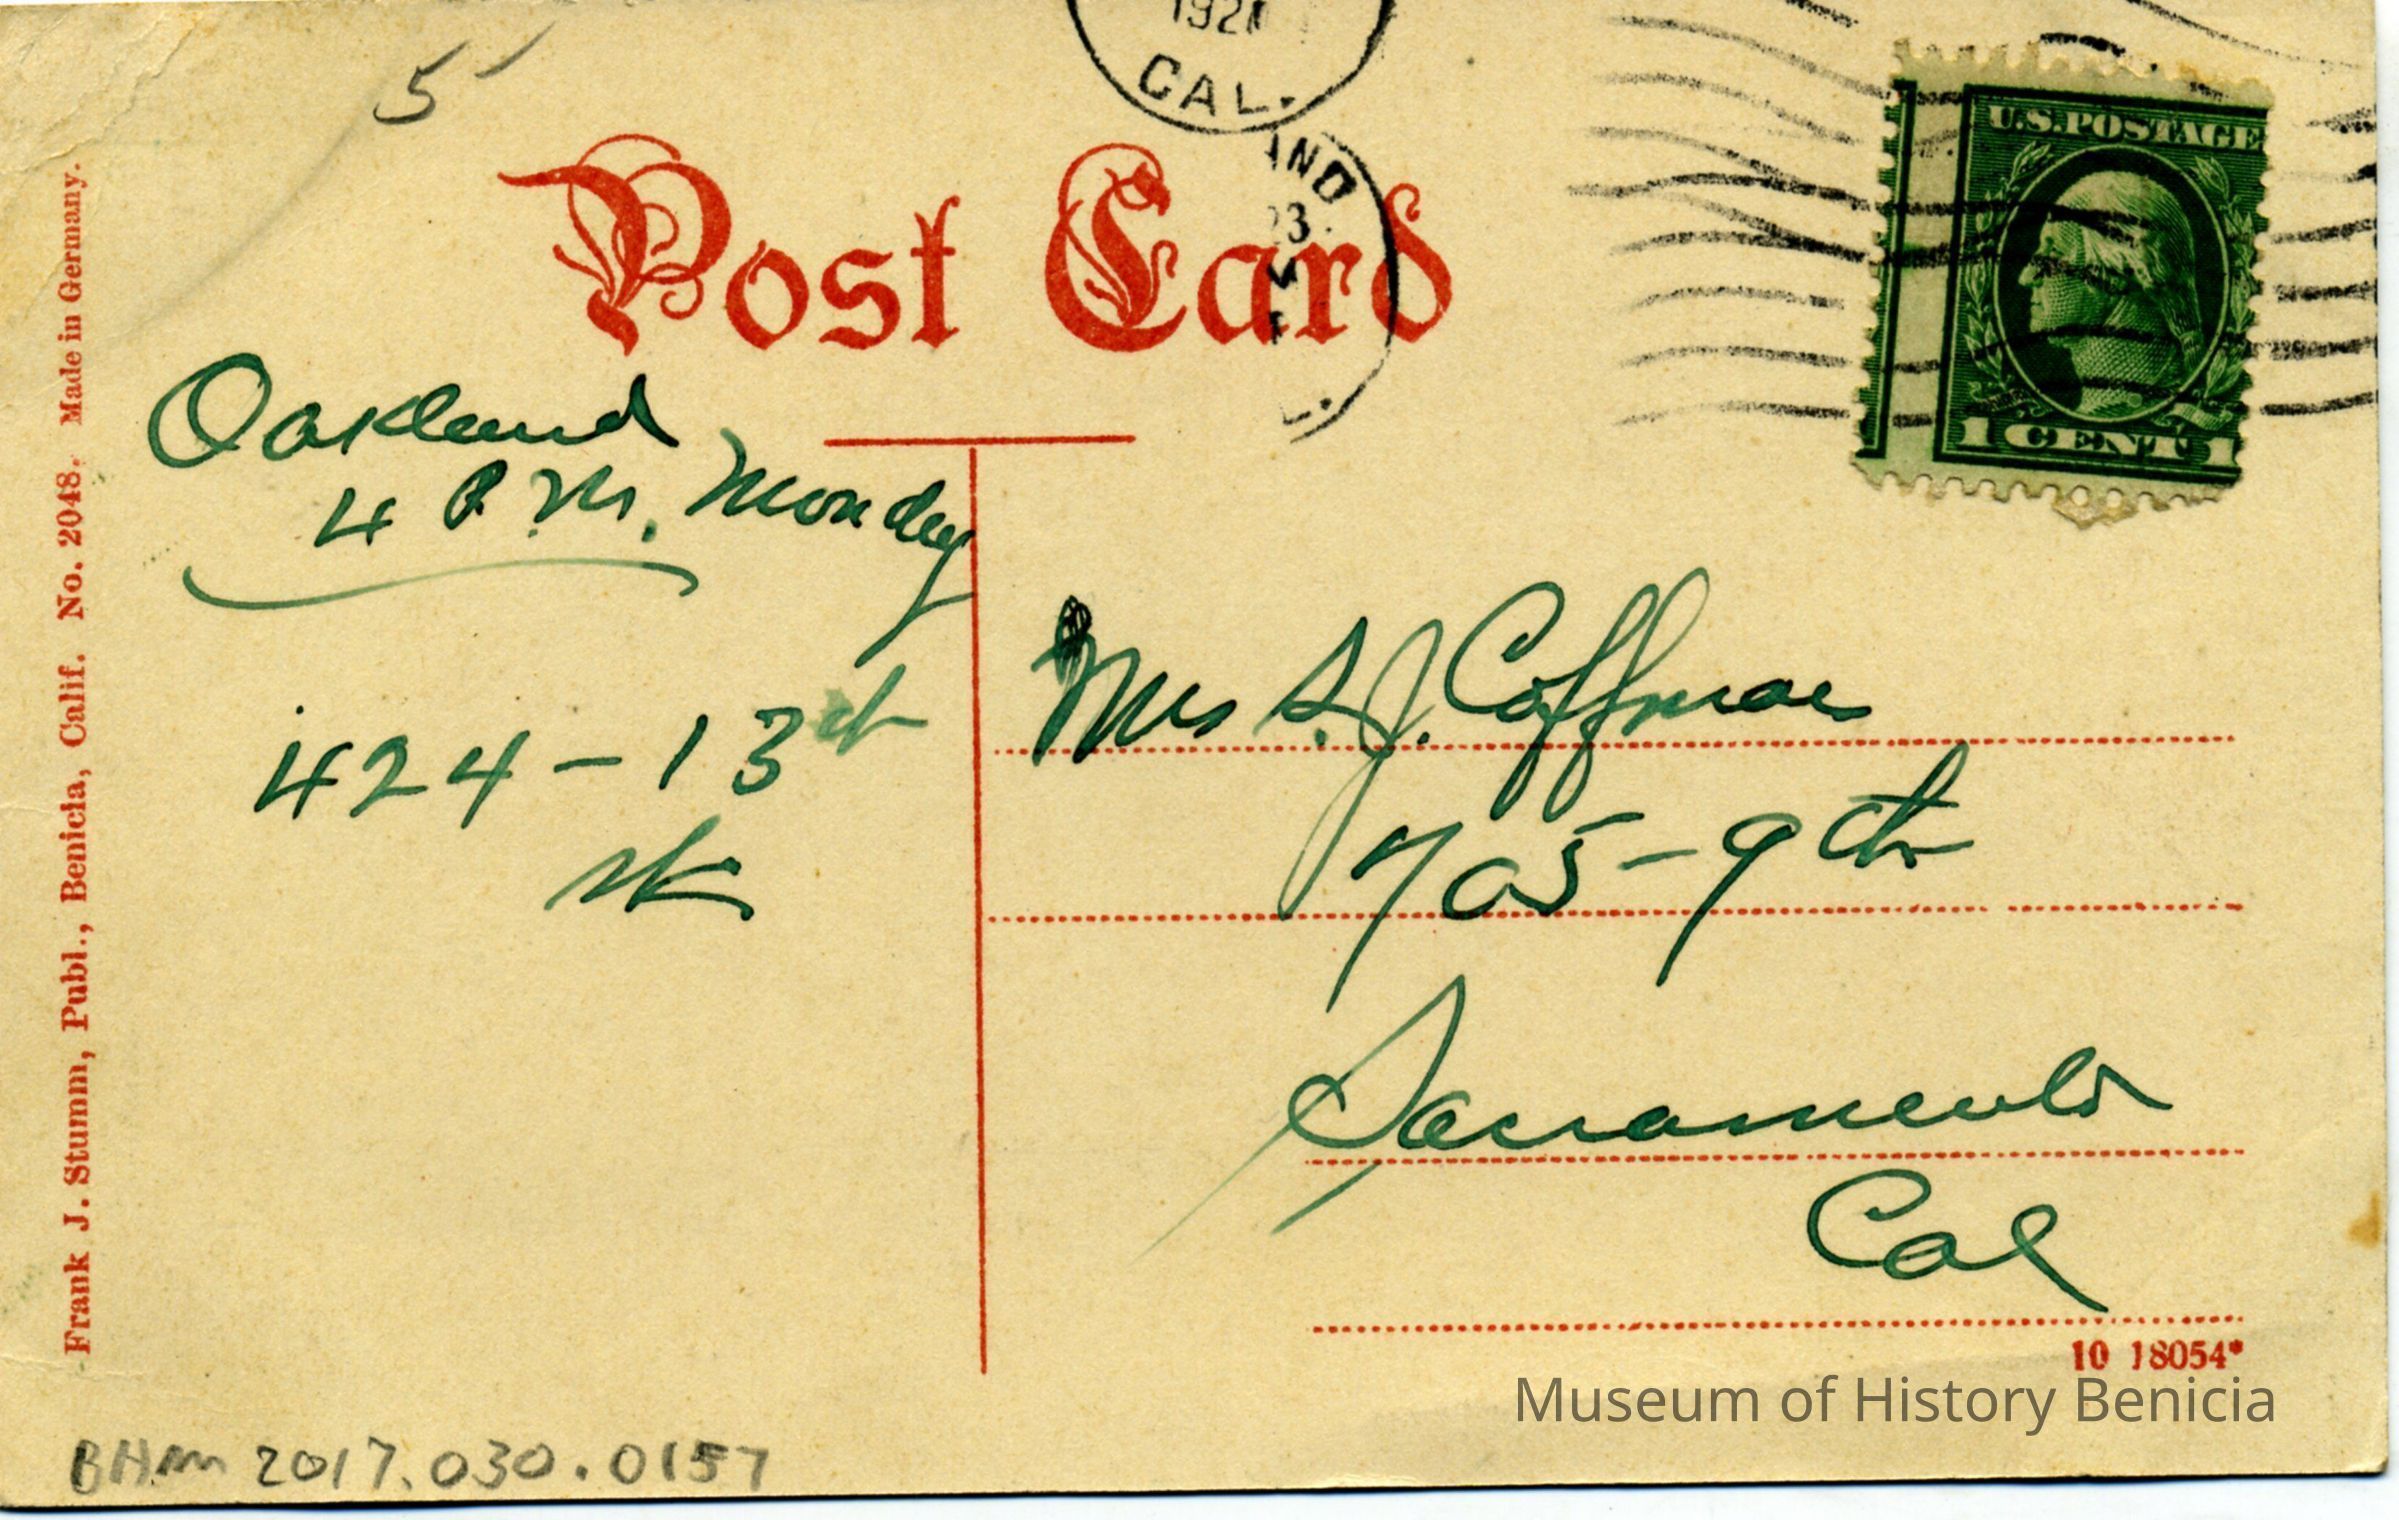 5
CAL.
U.S. POSTAGE
1 CENT 1
Post Card
Oakland
4 P.M. Monday
424 - 13th
Mrs S. J. Coffman
705 - 9th
Sacramento
Cal
Frank J. Stumm, Publ., Benicia, Calif. No. 2048. Made in Germany.
10 18054*
Museum of History Benicia
BHM 2017.030.0157